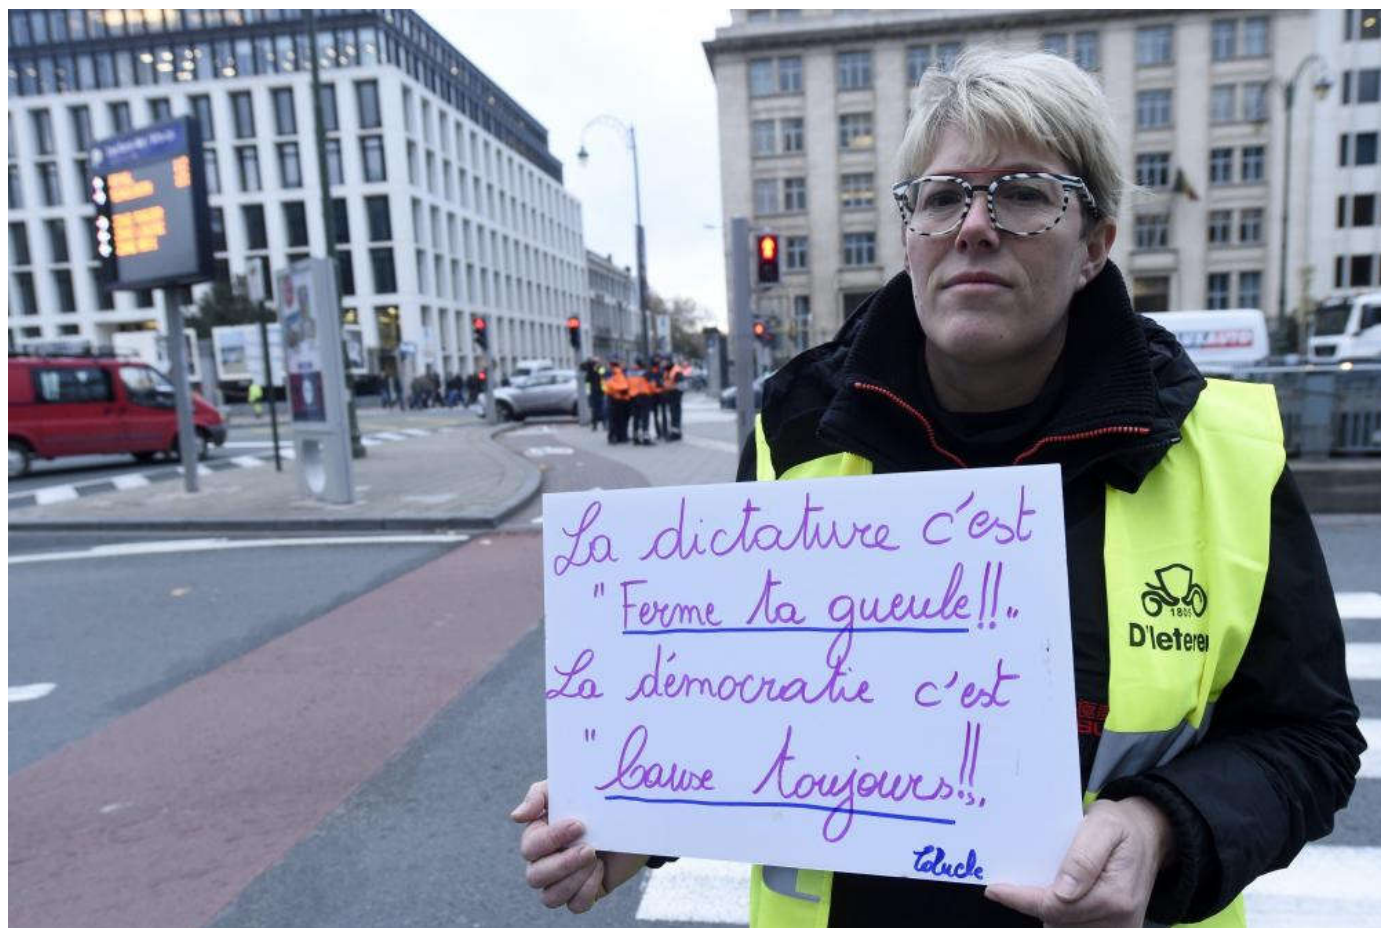 La dictature c'est
"Ferme ta gueule!!"
La démocratie c'est
"Cause toujours!!"
Coluche
1805
D'Ieteren